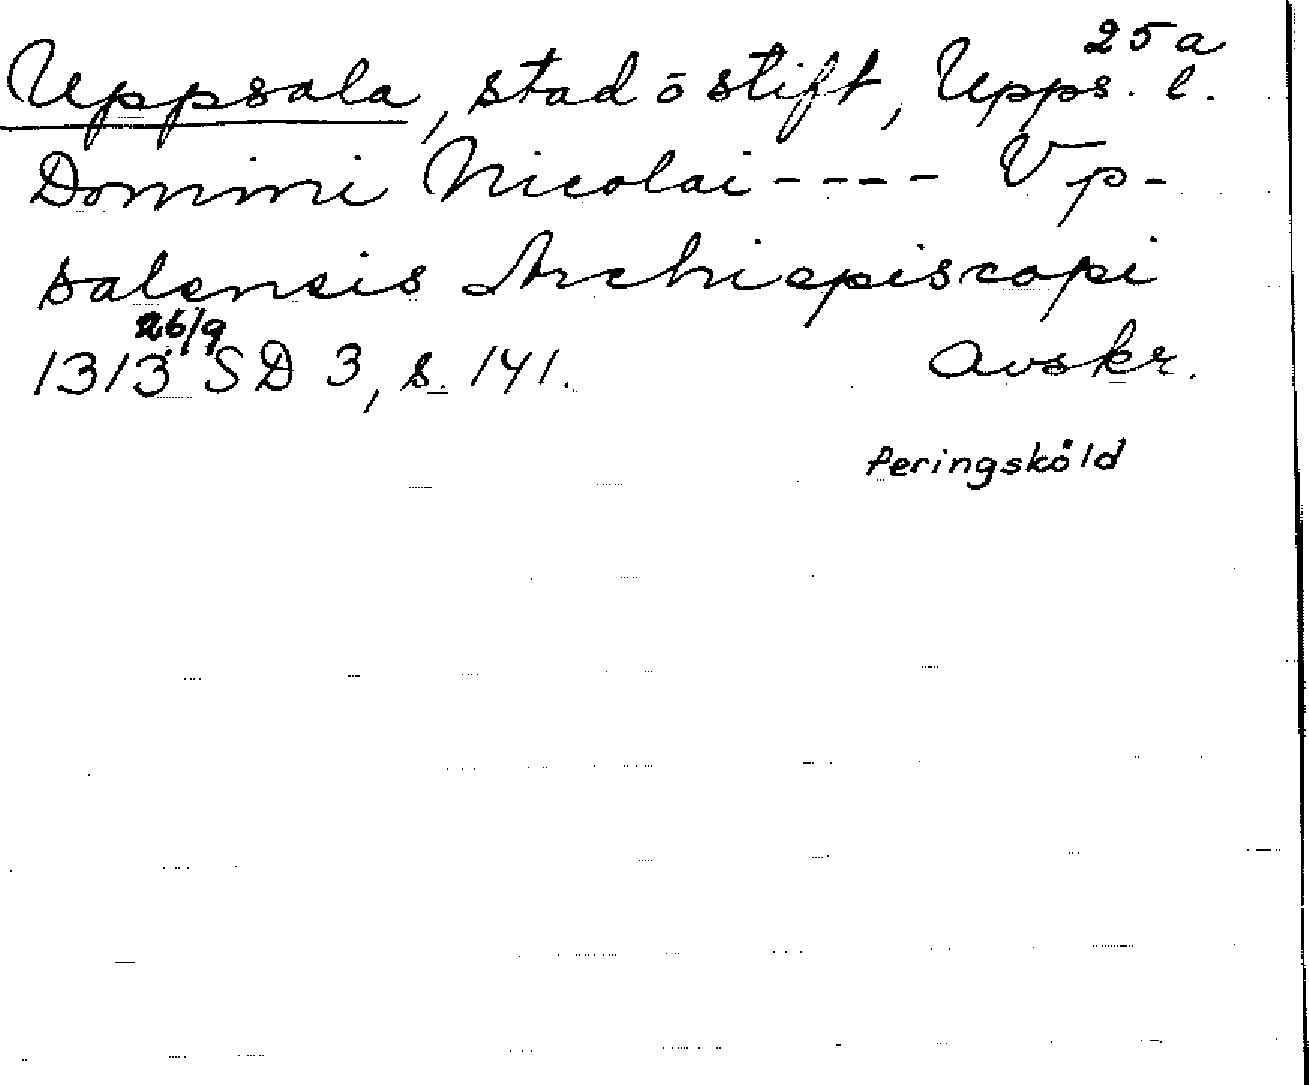 25a
Uppsala, stad o stift, Upps. l.
Domini Nicolai ---- Vp-
salensis Archiepiscopi
26/9
1313 SD 3, s. 141. Avskr.
Peringsköld